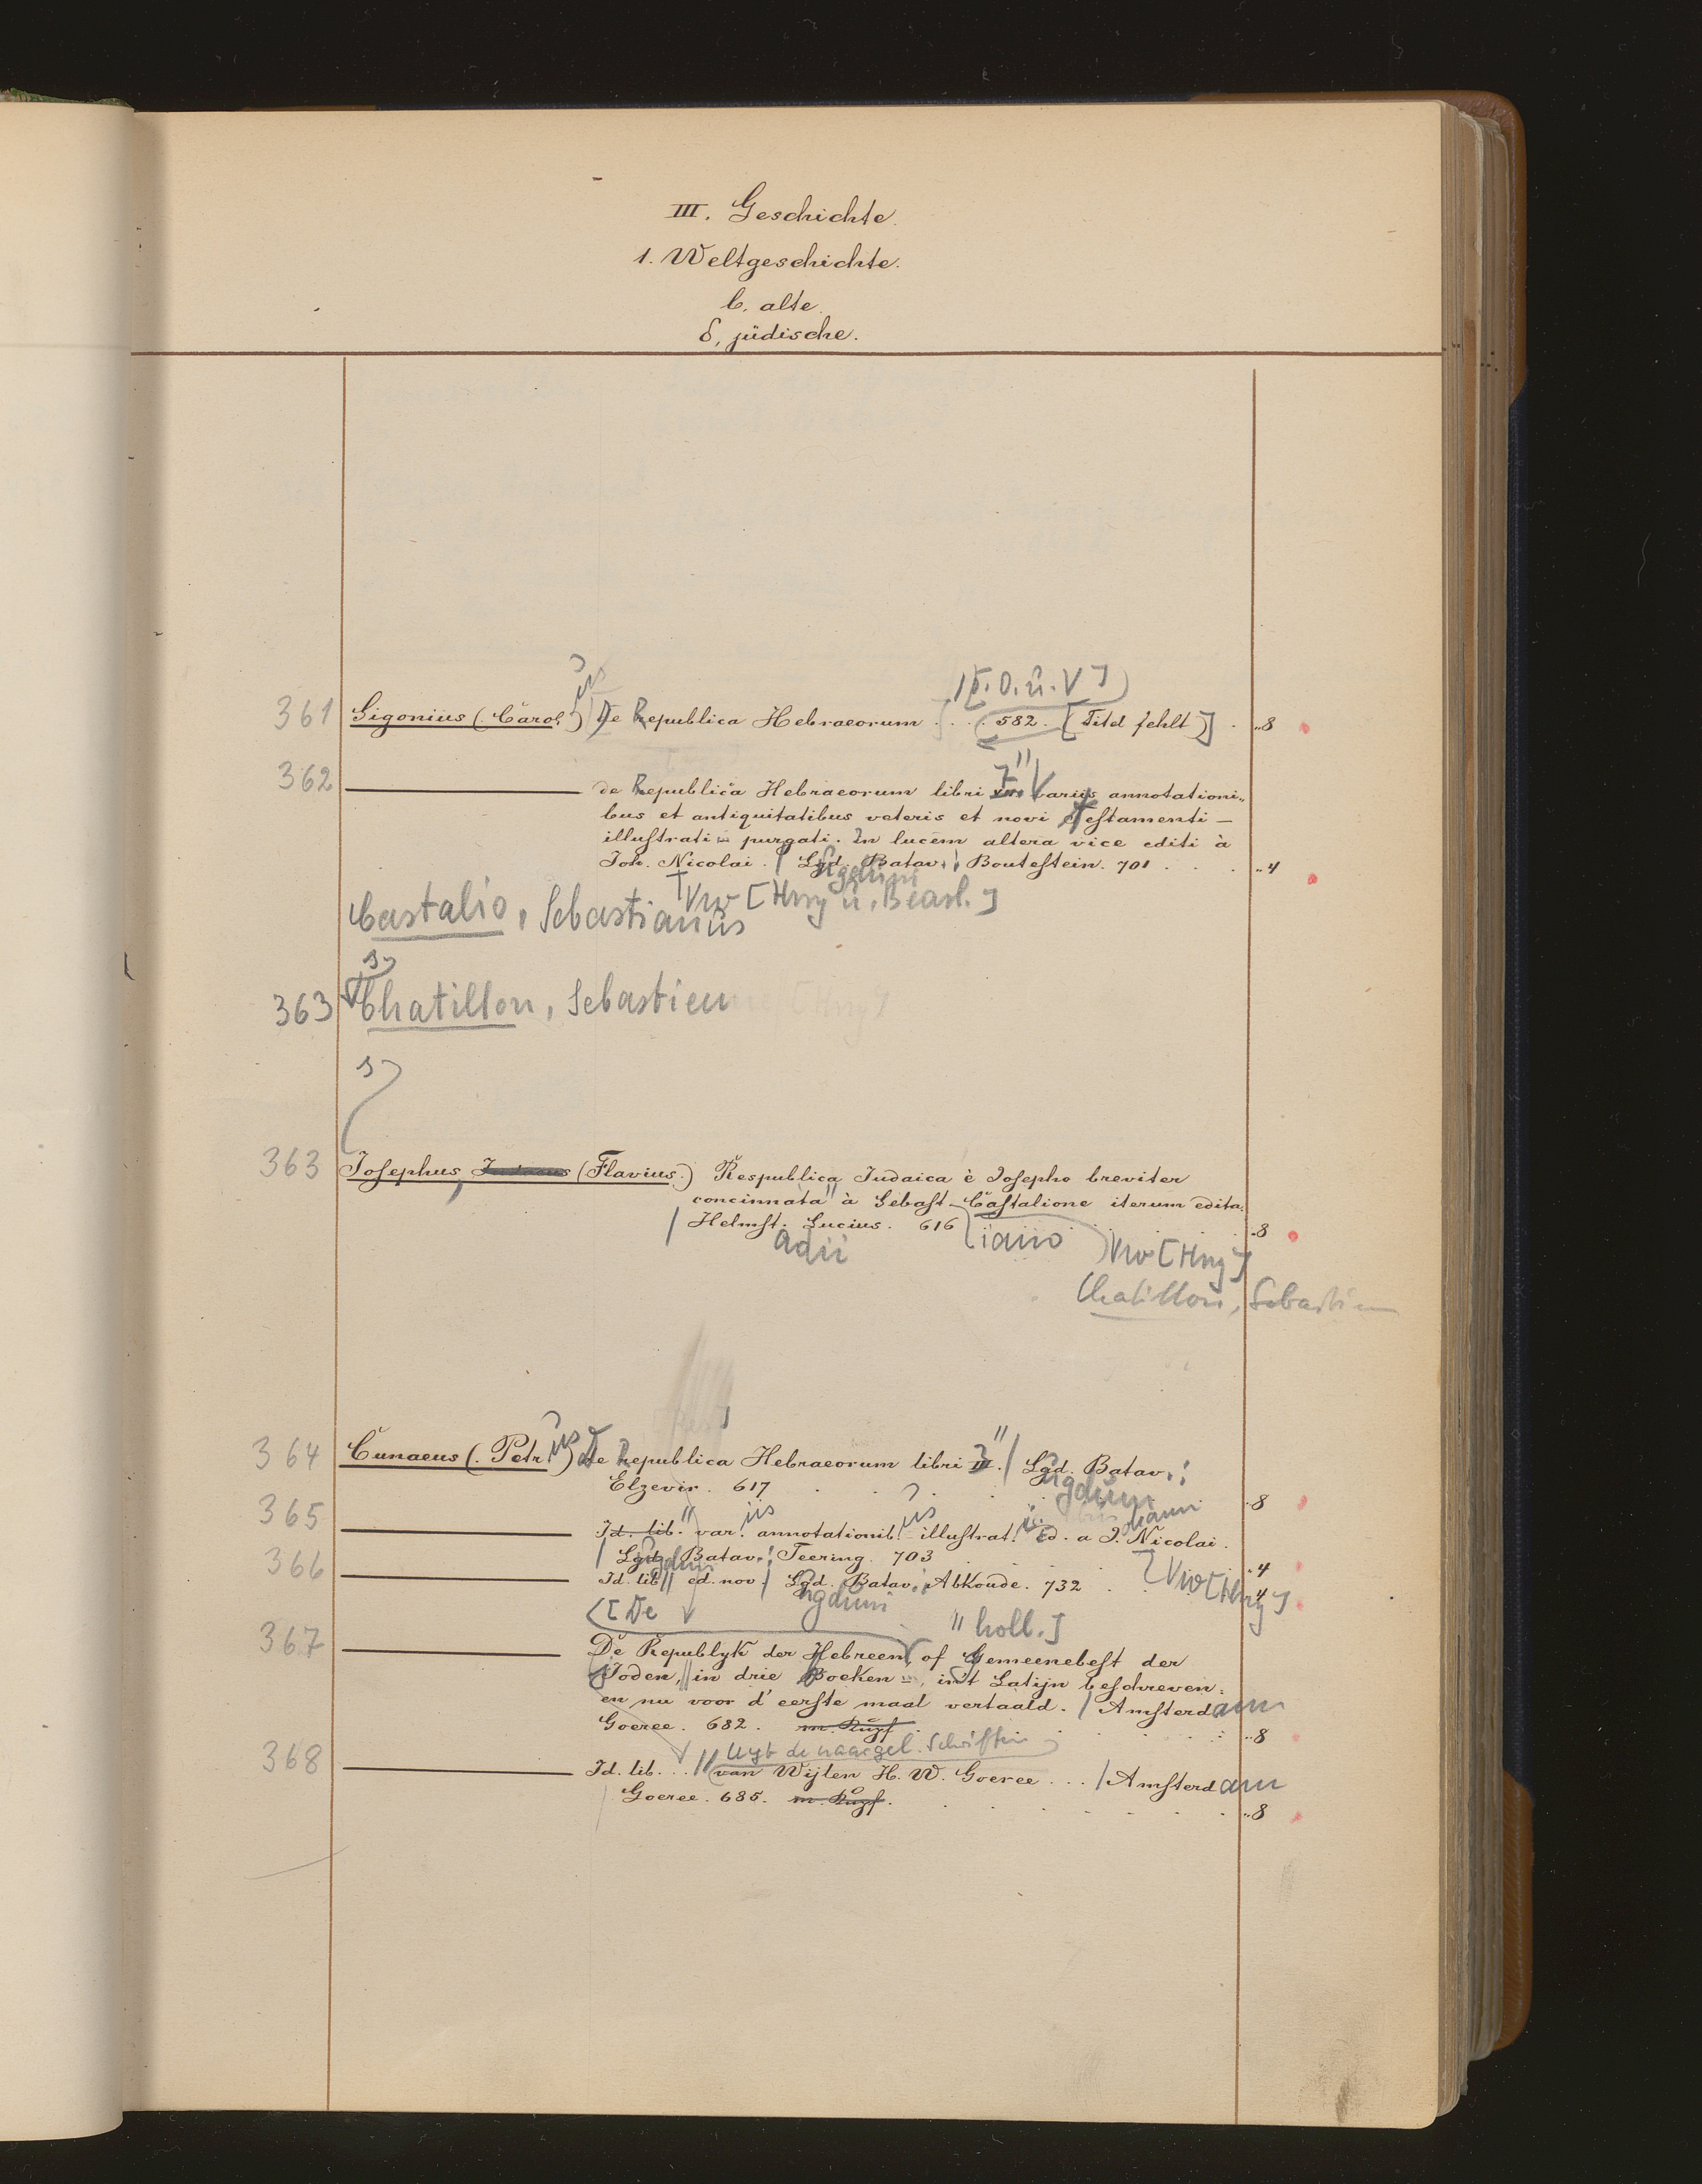 III. Geschichte.
1. Weltgeschichte.
b, alte.
δ, jüdische.
[O. O. u. V]
361 Sigonius (Carol.) us De Republica Hebraeorum . . . 582. [Titel fehlt] . „8
362 de Republica Hebraeorum libri 7 variis annotationi„
bus et antiquitatibus veteris et novi Testamenti –
illustrati = purgati. In lucem altera vice editi à
Joh. Nicolai. / Lgd. Batav.: Boutestein. 701 . . . „4
ugduni
Vw [Hrsg u. Bearb.]
Castalio, Sebastianus
s
363 Chatillon, Sebastien
s
363 Josephus, (Flavius.) Respublica Judaica è Josepho breviter
concinnata" à Sebast– Castalione iterum edita.
/ Helmst. Lucius. 616 . . . . „8
adii iano Vw [Hrsg]
Chatillon, Sebastien
364 Cunaeus (Petr.) us De Republica Hebraeorum libri 3. / Lgd. Batav.:
ugduni
Elzevir. 617 . . . . „8
365 Id. lib." var. iis annotationib. us illustrat. Ed. a J. Nicolai.
ohann
/ Lgd. Batav.: Teering. 703 . . „4
ugduni
366 Id. lib. // ed. nov / Lgd. Batav.: Abkoude. 732 . „4
ugduni
Vw [Hrsg]
[De " holl.]
367 De Republyk der Hebreen, of Gemeenebest der
Joden, // in drie Boeken =, in't Latijn beschreven.
en nu voor d' eerste maal vertaald. / Amsterdam
Goeree. 682. m. Kupf. . . . „8
Uyt de naargel. Schriften
368 Id. lib. . . // van Wijlen H. W. Goeree . . . / Amsterdam
Goeree. 685. m. Kupf. . . . . „8